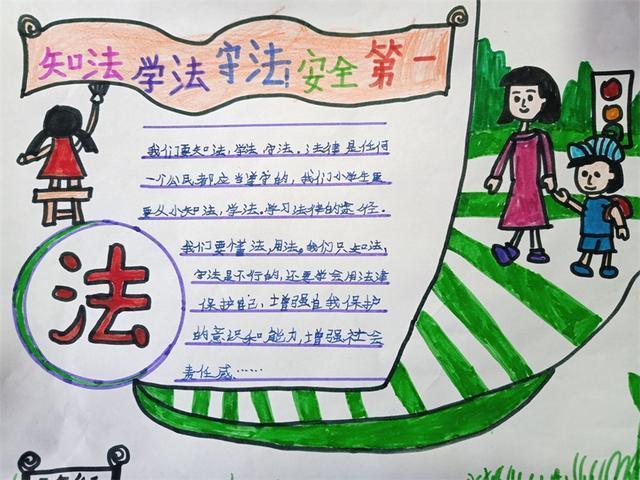 知法学法守法安全第一
我们要知法,学法,守法。法律是任何
一个公民都应当遵守的,我们小学生更
要从小知法,学法。学习法律的途径。
我们要懂法,用法。我们只知法,
守法是不行的,还要学会用法律
保护自己,增强自我保护
的意识和能力,增强社会
责任感……
法